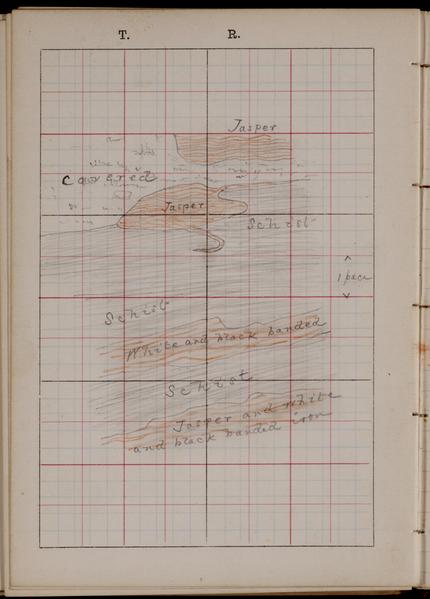 T. R.
Jasper
Covered
Jasper
Schist
1 pace
Schist
White and black banded
Schist
Jasper and white
and black banded iron